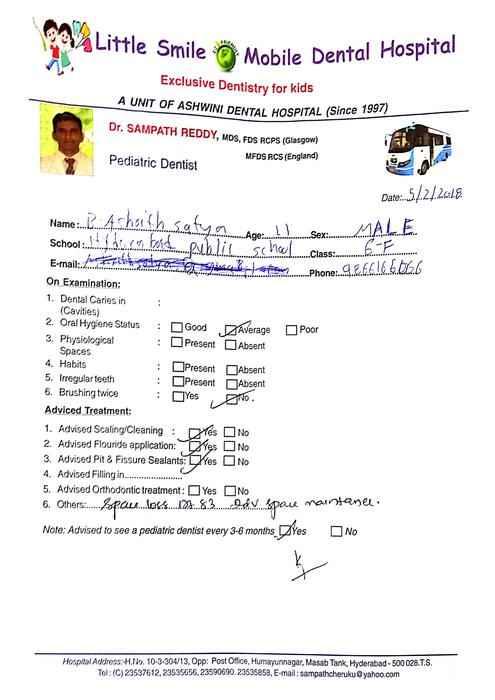 Little Smile Mobile Dental Hospital
Exclusive Dentistry for kids
A UNIT OF ASHWINI DENTAL HOSPITAL (Since 1997)
Dr. SAMPATH REDDY, MDS, FDS RCPS (Glasgow)
MFDS RCS (England)
Pediatric Dentist
Date: 5/2/2018
Name: P Ashrith satya Age: 11 Sex: MALE
School: public school Class: 6-F
E-mail: Phone: 9866166066
On Examination:
1. Dental Caries in :
(Cavities)
2. Oral Hygiene Status : Good Average Poor
3. Physiological : Present Absent
Spaces
4. Habits : Present Absent
5. Irregular teeth : Present Absent
6. Brushing twice : Yes No.
Adviced Treatment:
1. Advised Scaling/Cleaning : Yes No
2. Advised Flouride application: Yes No
3. Advised Pit & Fissure Sealants: Yes No
4. Advised Filling in
5. Advised Orthodontic treatment : Yes No
6. Others: Space loss 83 Adv space maintance.
Note: Advised to see a pediatric dentist every 3-6 months Yes No
Hospital Address:-H.No. 10-3-304/13, Opp: Post Office, Humayunnagar, Masab Tank, Hyderabad - 500 028.T.S.
Tel : (C) 23537612, 23535656, 23590690. 23535858, E-mail : sampathcheruku@yahoo.com